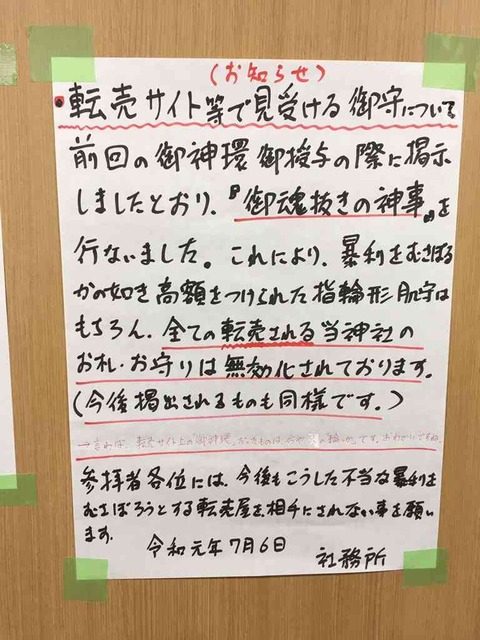 (お知らせ)
転売サイト等で見受ける御守について
前回の御神環御授与の際に掲示
しましたとおり、『御魂抜きの神事』を
行ないました。これにより、暴利をむさぼる
かの如き高額をつけられた指輪形肌守は
もちろん、全ての転売される当神社の
お札・お守りは無効化されております。
(今後掲出されるものも同様です。)
→言わば、転売サイト上の「御神環」なるものは、今や です。おわかいですね。
参拝者各位には、今後もこうした不当な暴利を
むさぼろうとする転売屋を相手にされない事を願い
ます。
令和元年7月6日
社務所